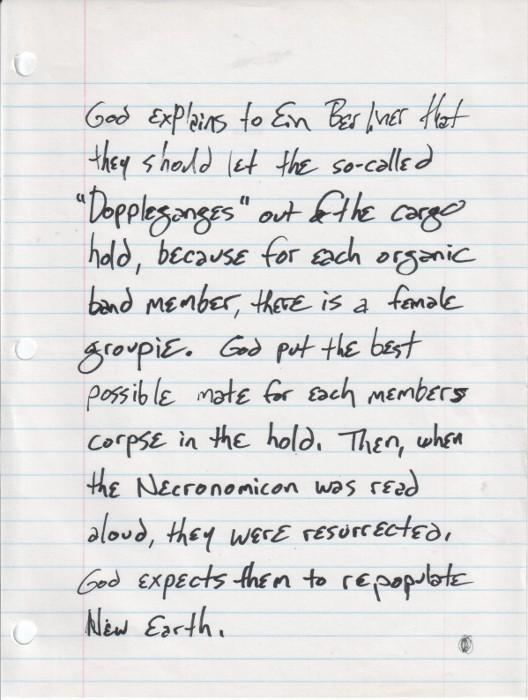 God explains to Ein Berliner that
they should let the so-called
"Doppleganges" out of the cargo
hold, because for each organic
band member, there is a female
groupie. God put the best
possible mate for each members
corpse in the hold. Then, when
the Necronomicon was read
aloud, they were resurrected.
God expects them to repopulate
New Earth.